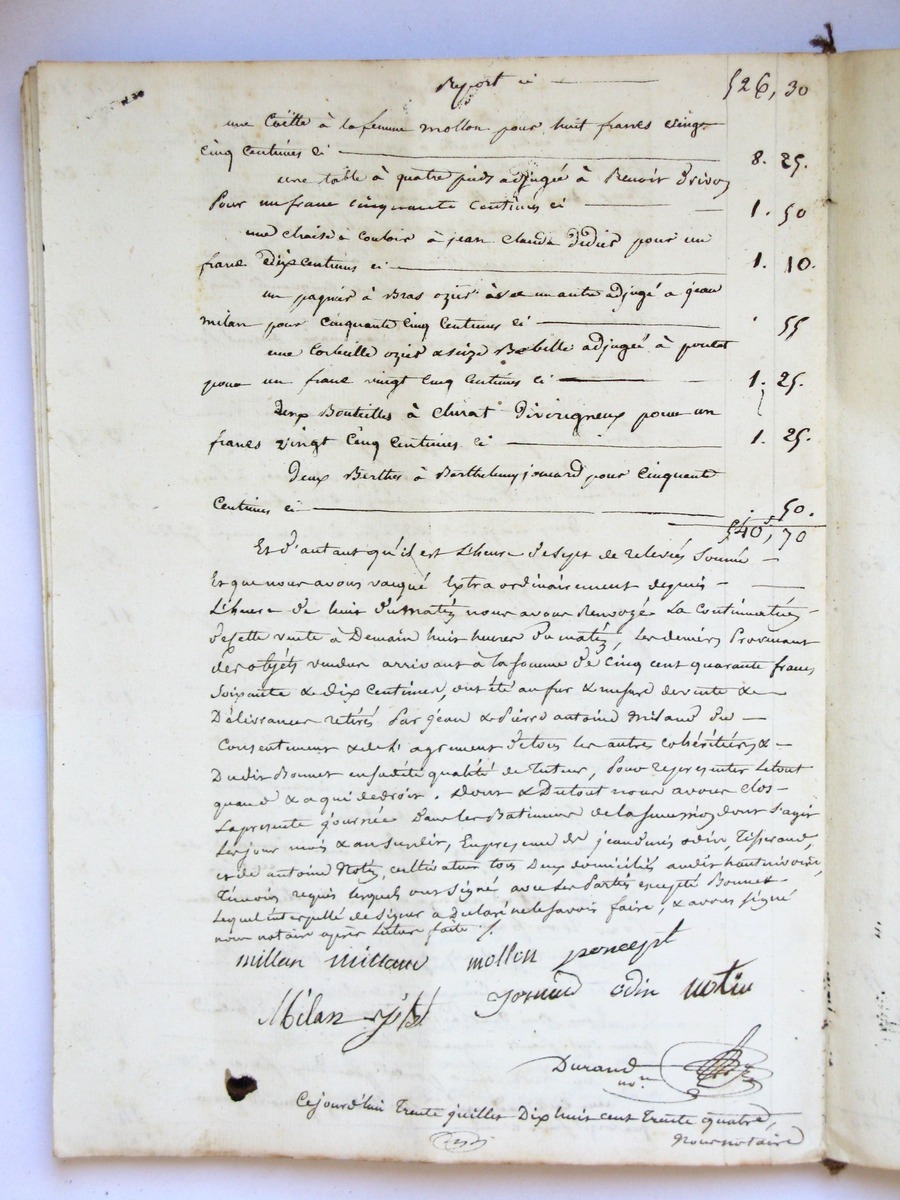 Report ci 526, 30
une Coëtte à la femme mollon pour huit francs vingt
cinq Centimes ci 8. 25.
une table à quatre pieds adjugée à Benoit
Pour un franc cinquante Centimes ci 1. 50
une chaise à Couloir à jean Claude Didier pour un
franc dix centimes ci 1. 10.
un pagnier à Bras ozier avec un autre adjugé à jean
milan pour Cinquante Cinq Centimes ci 55
une Corbeille ozier & seize adjugée à poulat
pour un franc vingt cinq Centimes ci 1. 25.
Deux Bouteilles à Chirat pour un
francs vingt Cinq Centimes ci 1. 25.
Deux Berthes à Barthelemy jomard pour Cinquante
Centimes ci 50.
540, 70
Et d'autant qu'il est L'heure de sept de relevées Sonnée
Et que nous avons vacqué Extraordinairement depuis
L'heure de huit du matin, nous avons Renvoyé La Continuation
de cette vente à Demain huit heures du matin, Les deniers Provenant
des objets vendus arrivant à la Somme de Cinq cent quarante francs
Soixante & dix Centimes, ont été au fur & mesure de vente &
Délivrance retirés Par jean & Pierre antoine milan du
Consentement & de l'agrément de tous les autres cohéritiers &
Dudit Bonnet en sadite qualité de Tuteur, Pour représenter Le tout
quand & a qui de droit. Dont & Du tout nous avons clos
La présente journée Dans les Batimens de la succession dont s'agit
Les jour mois & an susdis, En présence de jean denis odin, Tisserand,
et de antoine Notin, cultivateur tous Deux domiciliés audit
Témoins requis lesquels ont Signé avec Les Parties excepté Bonnet
Lequel interpellé de Signer a Déclaré ne le Savoir faire, & avons signé
nous notaire après Lecture faite ./.
millan millan mollon percept
Milan jomard odin notin
Durand
no.re
Cejourd'hui Trente juillet Dix huit cent Trente quatre,
Nous notaire